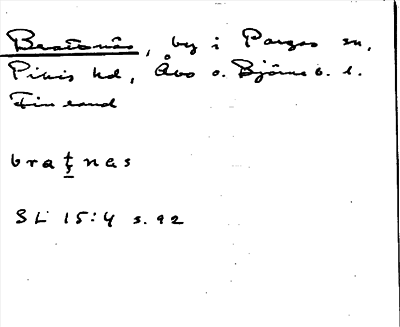 Brattnäs, by i Pargas sn,
Pikis hd, Åbo o. Björneb. l.
Finland
braṭnäs
SL 15:4 s. 92